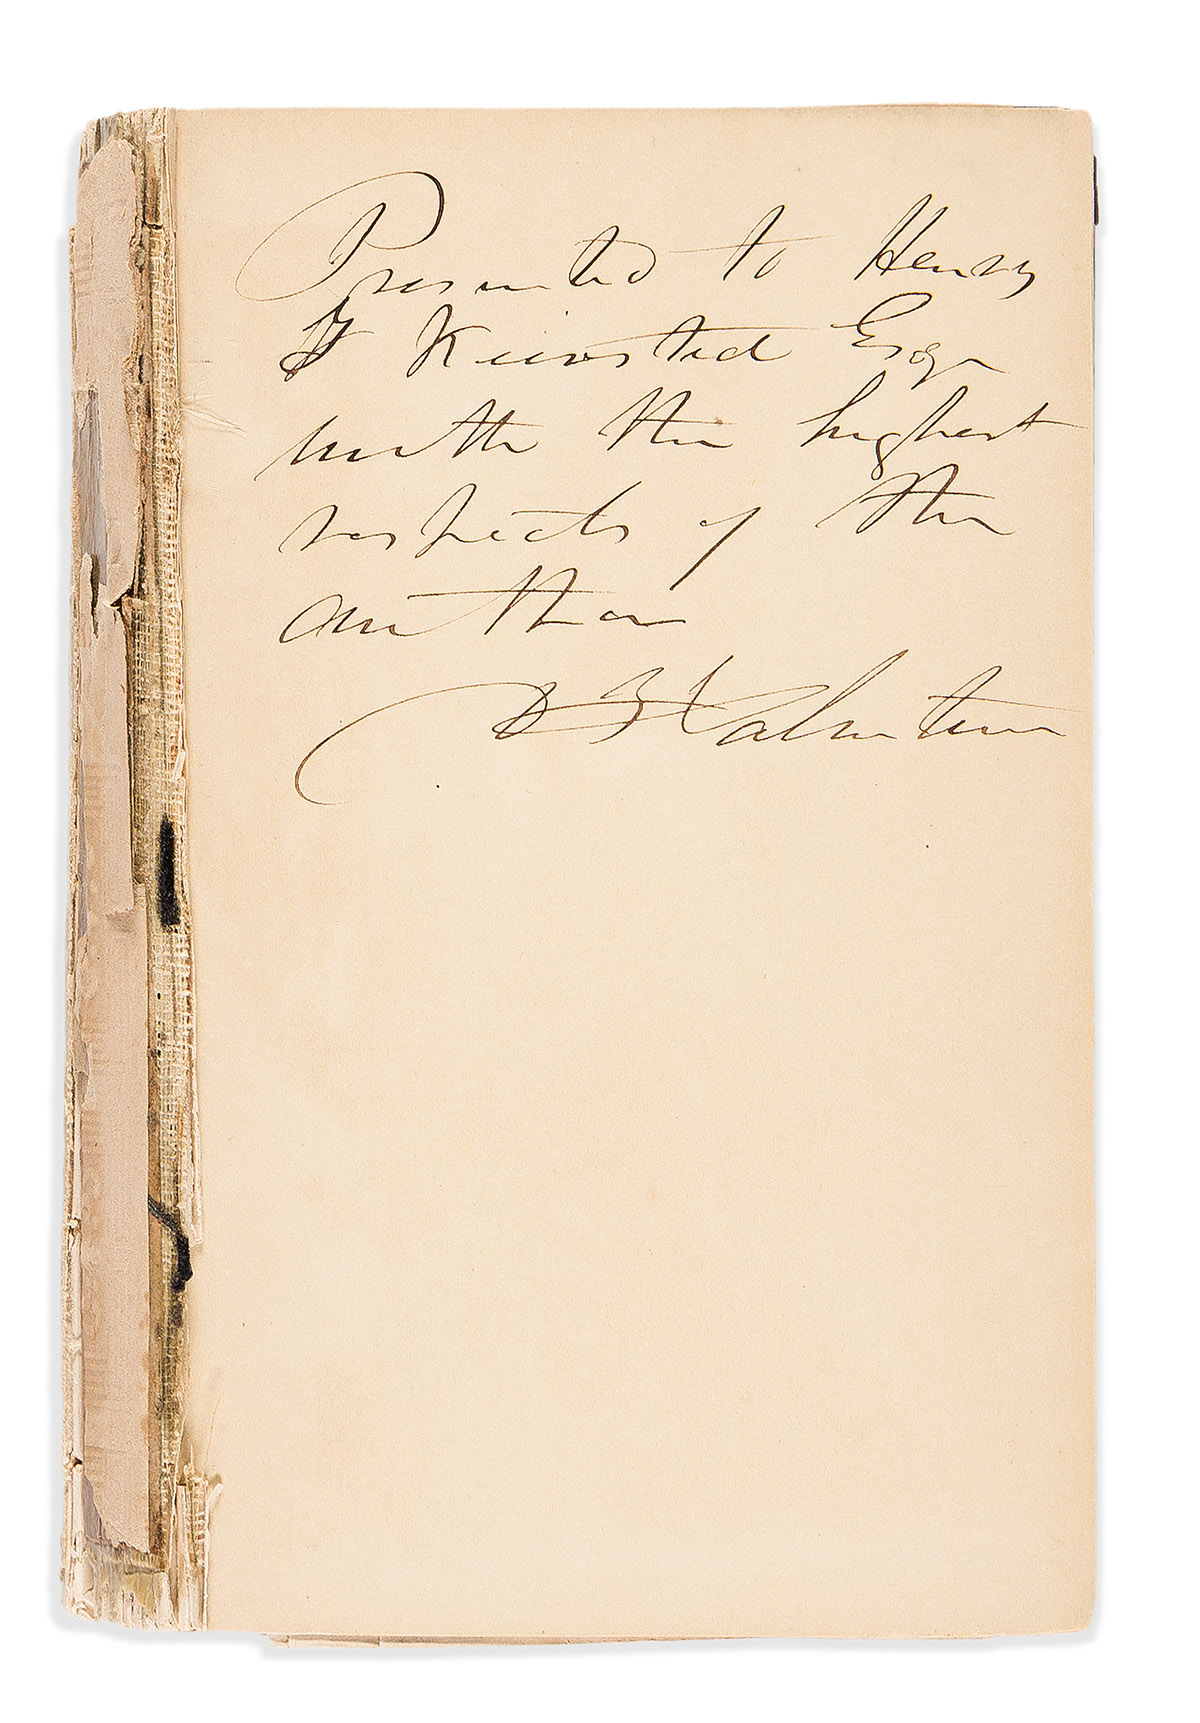 Presented to Henry
T Kiersted Esqr
with the highest
respects of the
author
D T Valentine